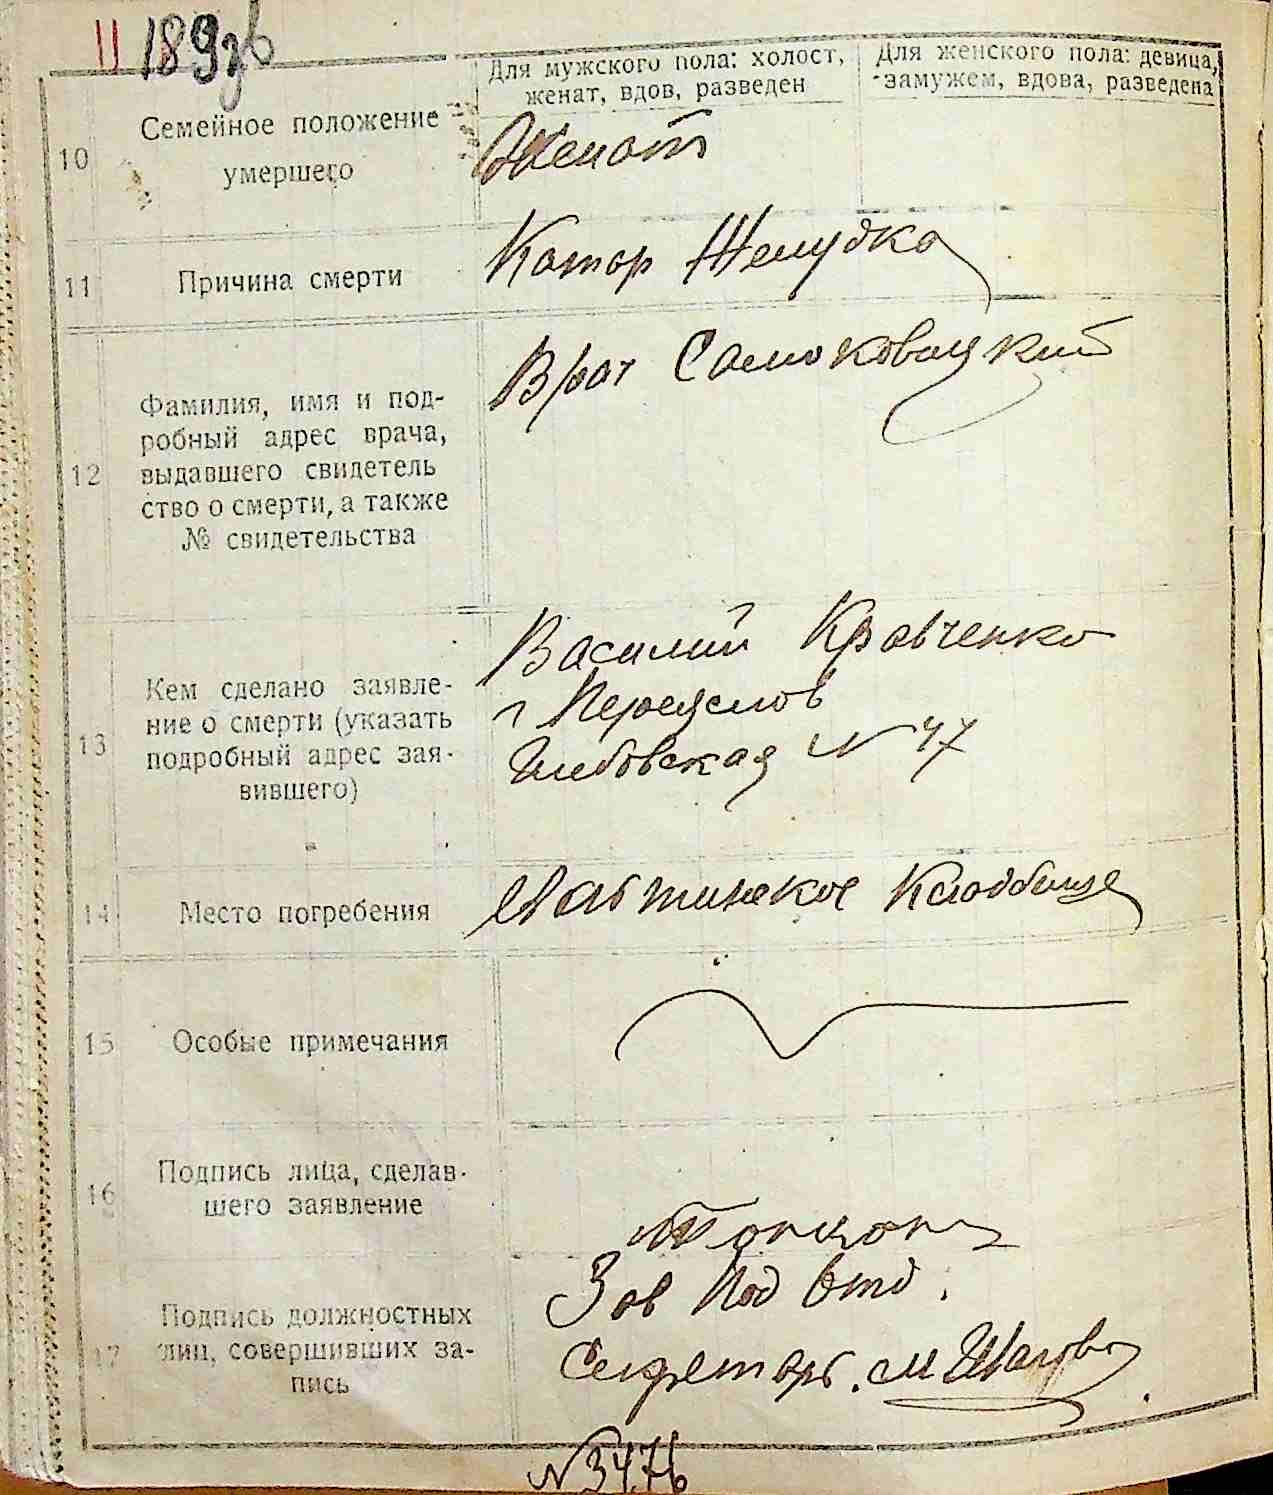 11 189
Для мужского пола: холост, женат, вдов, разведен
Для женского пола: девица, замужем, вдова, разведена
10
Семейное положение
умершего
Женат
11
Причина смерти
Катар Желудка
12
Фамилия, имя и под-
робный адрес врача,
выдавшего свидетель
ство о смерти, а также
№ свидетельства
Врач
13
Кем сделано заявле-
ние о смерти (указать
подробный адрес зая-
вившего)
Василий Кравченко
г
№ 47
14
Место погребения
Кладбище
15
Особые примечания
16
Подпись лица, сделав-
шего заявление
17
Подпись должностных
лиц, совершивших за-
пись
Зав Под Отд.
Секретарь. М
№ 3476